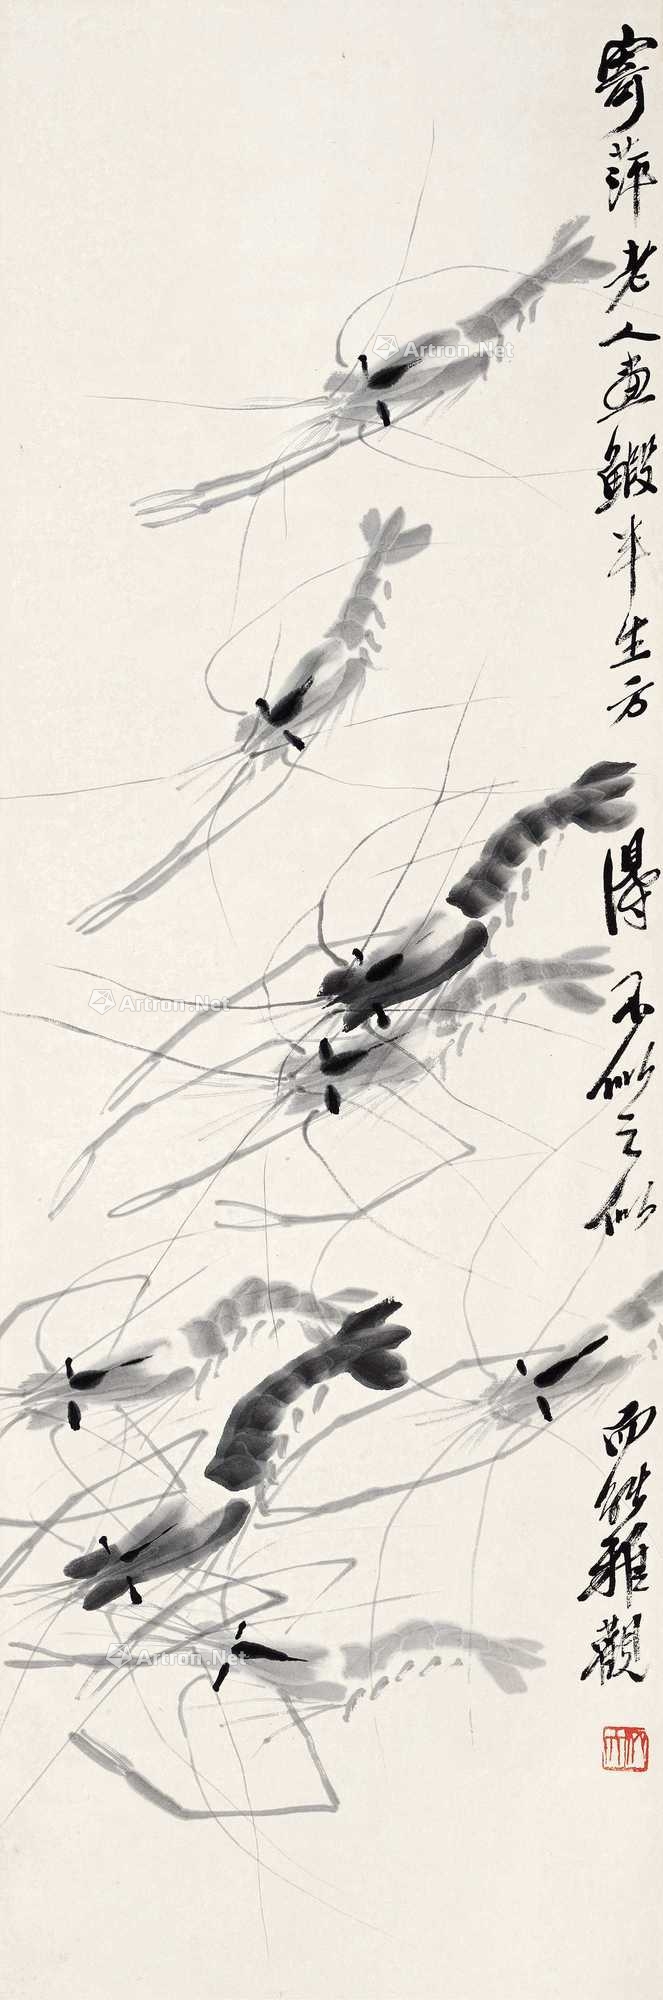 寄萍老人画鰕半生方得不似之似而能雅觀
Artron.Net
Artron.Net
Artron.Net